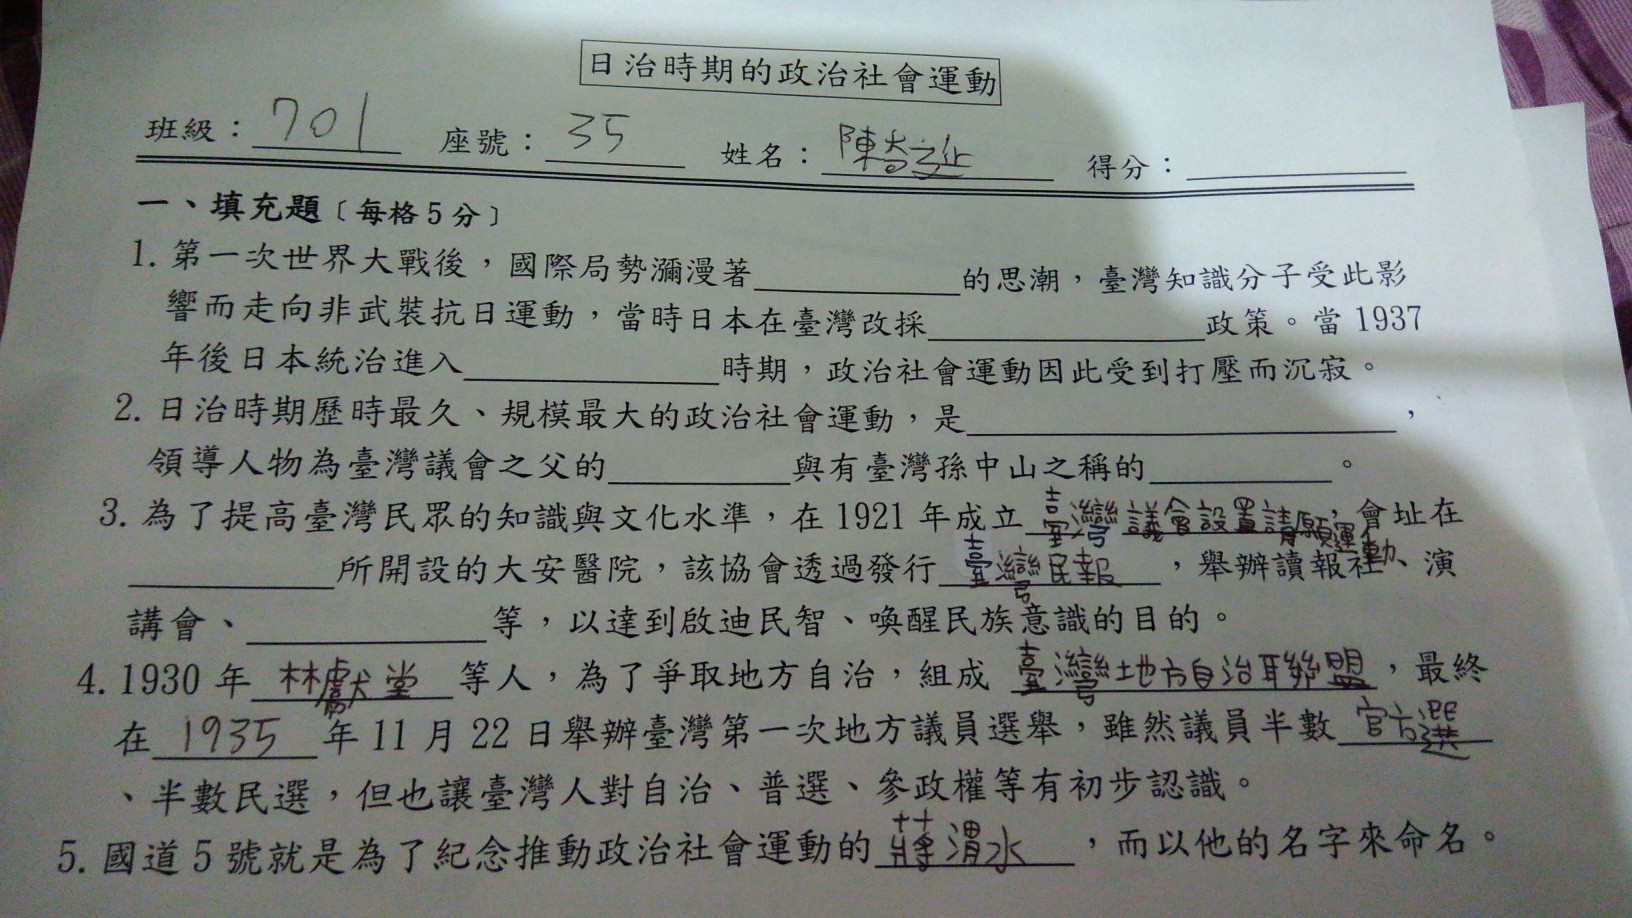 日治時期的政治社會運動
班級：701 座號：35 姓名：陳 得分：
一、填充題﹝每格5分﹞
1. 第一次世界大戰後，國際局勢瀰漫著＿＿＿＿的思潮，臺灣知識分子受此影
響而走向非武裝抗日運動，當時日本在臺灣改採＿＿＿＿政策。當 1937
年後日本統治進入＿＿＿＿時期，政治社會運動因此受到打壓而沉寂。
2. 日治時期歷時最久、規模最大的政治社會運動，是＿＿＿＿，
領導人物為臺灣議會之父的＿＿＿＿與有臺灣孫中山之稱的＿＿＿＿。
3. 為了提高臺灣民眾的知識與文化水準，在 1921 年成立臺灣議會設置請願運動，會址在
＿＿＿＿所開設的大安醫院，該協會透過發行臺灣民報，舉辦讀報社、演
講會、＿＿＿＿等，以達到啟迪民智、喚醒民族意識的目的。
4. 1930 年林獻堂等人，為了爭取地方自治，組成臺灣地方自治聯盟，最終
在1935年 11 月 22 日舉辦臺灣第一次地方議員選舉，雖然議員半數官方選
、半數民選，但也讓臺灣人對自治、普選、參政權等有初步認識。
5. 國道 5 號就是為了紀念推動政治社會運動的蔣渭水，而以他的名字來命名。